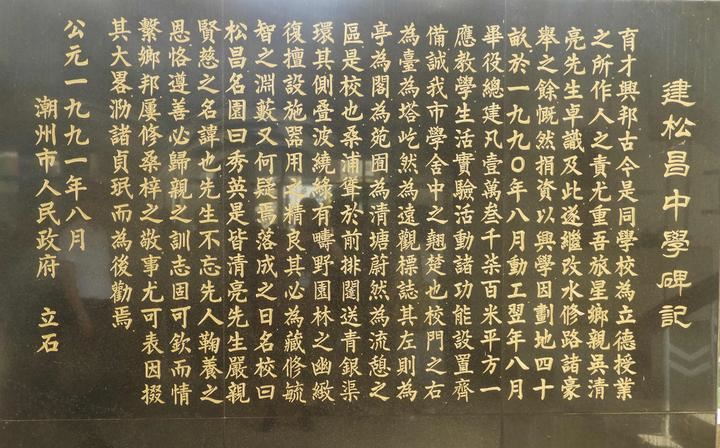 建松昌中學碑記
育才興邦古今是同學校為立德授業
之所作人之責尤重吾旅星鄉親吳清
亮先生卓識及此遂繼改水修路諸豪
舉之餘慨然捐資以興學因劃地四十
畝於一九九〇年八月動工翌年八月
畢役總建凡壹萬叁千柒百米平方一
應教學生活實驗活動諸功能設置齊
備誠我市學舍中之翹楚也校門之右
為臺為塔屹然為遠觀標誌其左則為
亭為閣為苑囿為清塘蔚然為流憩之
區是校也桑浦聳於前排闥送青銀渠
環其側叠波繞綠有疇野園林之幽緻
復檀設施器用之精良其必為藏修毓
智之淵藪又何疑焉落成之日名校曰
松昌名園曰秀英是皆清亮先生嚴親
賢慈之名諱也先生不忘先人鞠養之
恩恪遵善必歸親之訓志固可欽而情
繫鄉邦屢修桑梓之敬事尤可表因掇
其大畧泐諸貞珉而為後勸焉
公元一九九一年八月
潮州市人民政府 立石